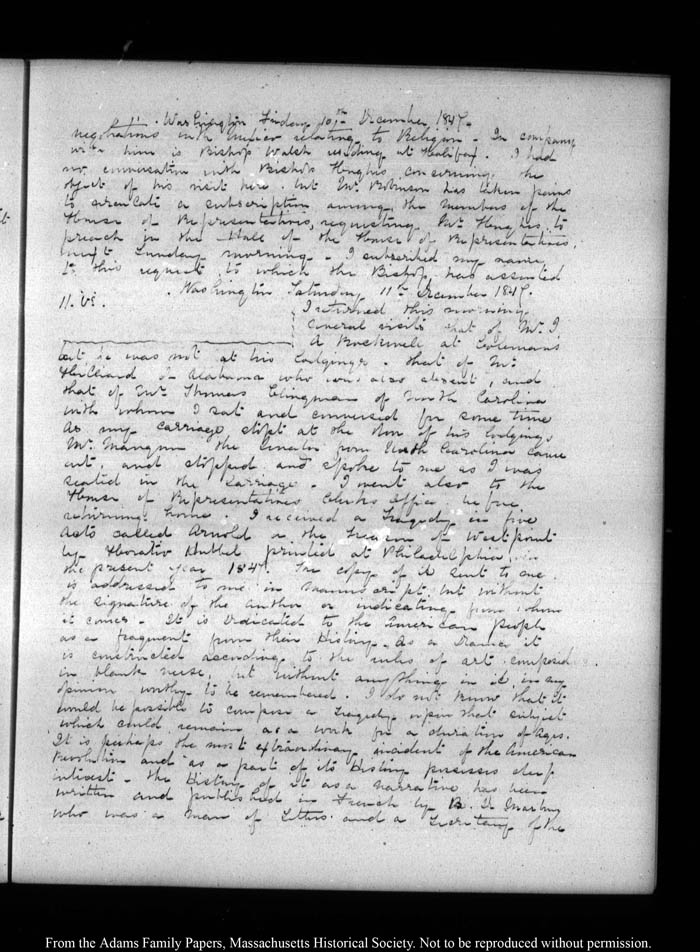 Washington Friday 10th December 1847.
negotiations with Mexico relating to Religion - In company
with him is Bishop Walsh residing at Halifax. I had
no conversation with Bishop Hughes concerning the
object of his visit here. but Mr. Robinson has taken pains
to circulate a subscription among the members of the
House of Representatives, requesting Mr Hughes to
preach in the Hall of the House of Representatives,
next Sunday morning. I subscribed my name
to this request, to which the Bishop has assented
Washington Saturday 11th December 1847.
11. VI.
I returned this morning
several visits that of Mr. J
A Rockwell at Coleman's
but he was not at his lodgings - that of Mr
Hilliard of Alabama who was also absent, and
that of Mr Thomas Clingman of North Carolina
with whom I sat and conversed for some time
As my carriage stopt at the door of his lodgings
Mr. Mangum the Senator from North Carolina came
out, and stopped and spoke to me as I was
seated in the carriage - I went also to the
House of Representatives Clerks office before
returning home. I received a Tragedy in five
Acts called Arnold or the Treason of West point
by Horatio Hubbel printed at Philadelphia in
the present year 1847. The copy of it sent to me
is addressed to me in manuscript, but without
the signature of the author or indicating from whom
it comes - It is dedicated to the American people
as a fragment from their History. As a Drama it
is constructed according to the rules of art composed
in blank verse, but without any thing in it in my
opinion worthy to be remembered. I do not know that it
would be possible to compose a Tragedy upon that subject
which could remain as a work for a duration of ages.
It is perhaps the most extraordinary incident of the American
Revolution and as a part of its History possesses deep
interest - the History of it as a narrative has been
written and published in French by B. De Marbois
who was a man of Letters and a Secretary of the
From the Adams Family Papers, Massachusetts Historical Society. Not to be reproduced without permission.